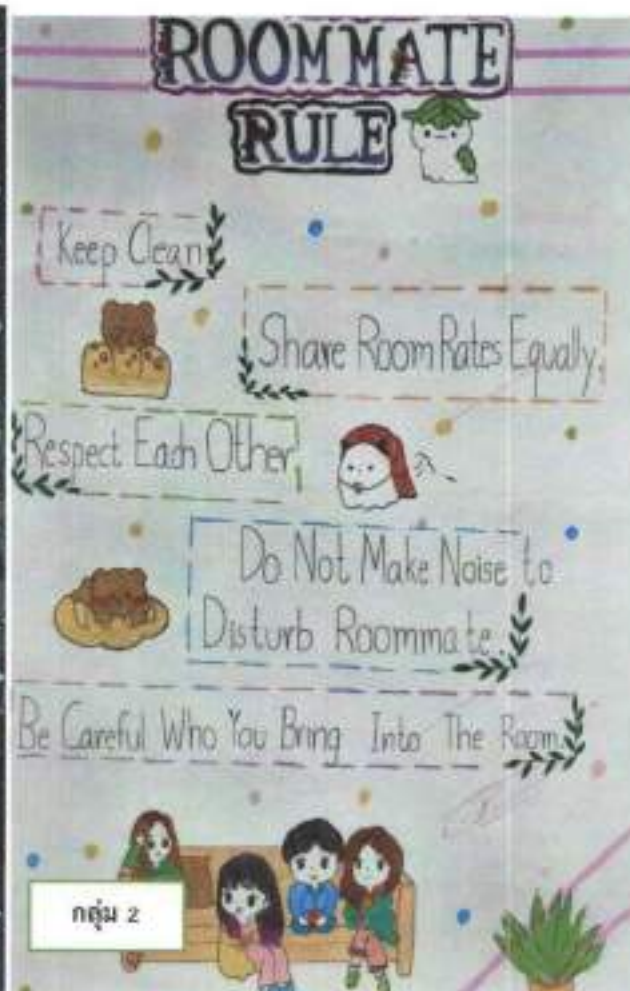 ROOMMATE
RULE
Keep Clean
Share Room Rates Equally
Respect Each Other
Do Not Make Noise to
Disturb Roommate
Be Careful Who You Bring Into The Room
กลุ่ม 2